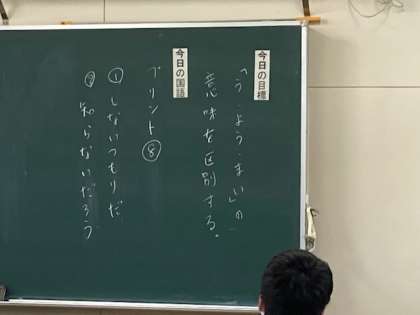 今日の目標
「う・よう・まい」の
意味を区別する。
今日の国語
プリント⑧
①しないつもりだ
②知らないだろう